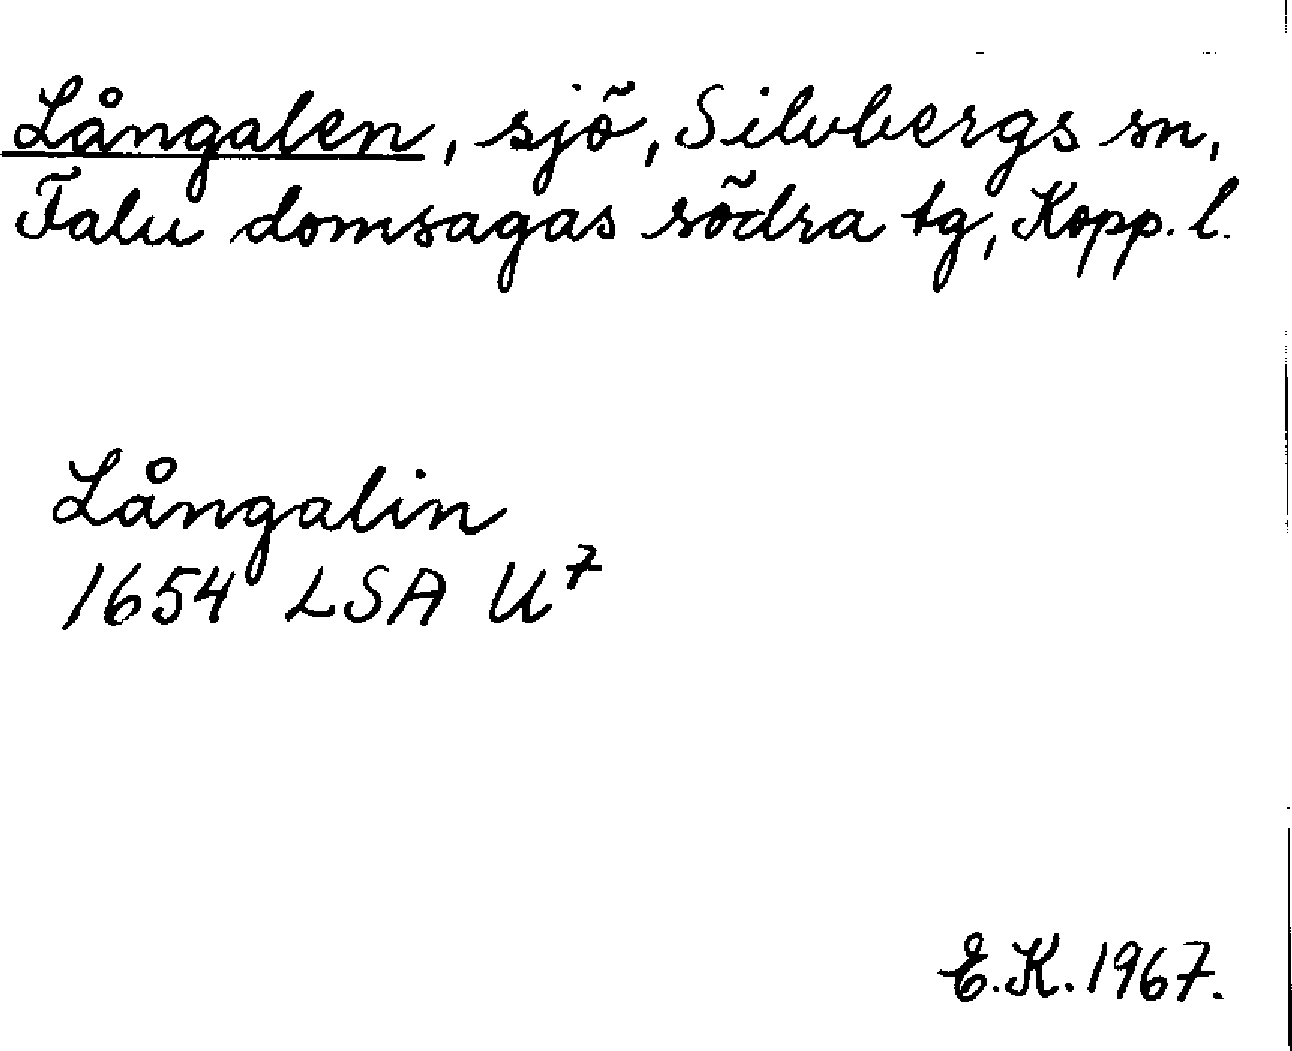 Långalen, sjö, Silvbergs sn,
Falu domsagas södra tg, Kopp. l.
Långalin
1654 LSA U⁷
E.K. 1967.